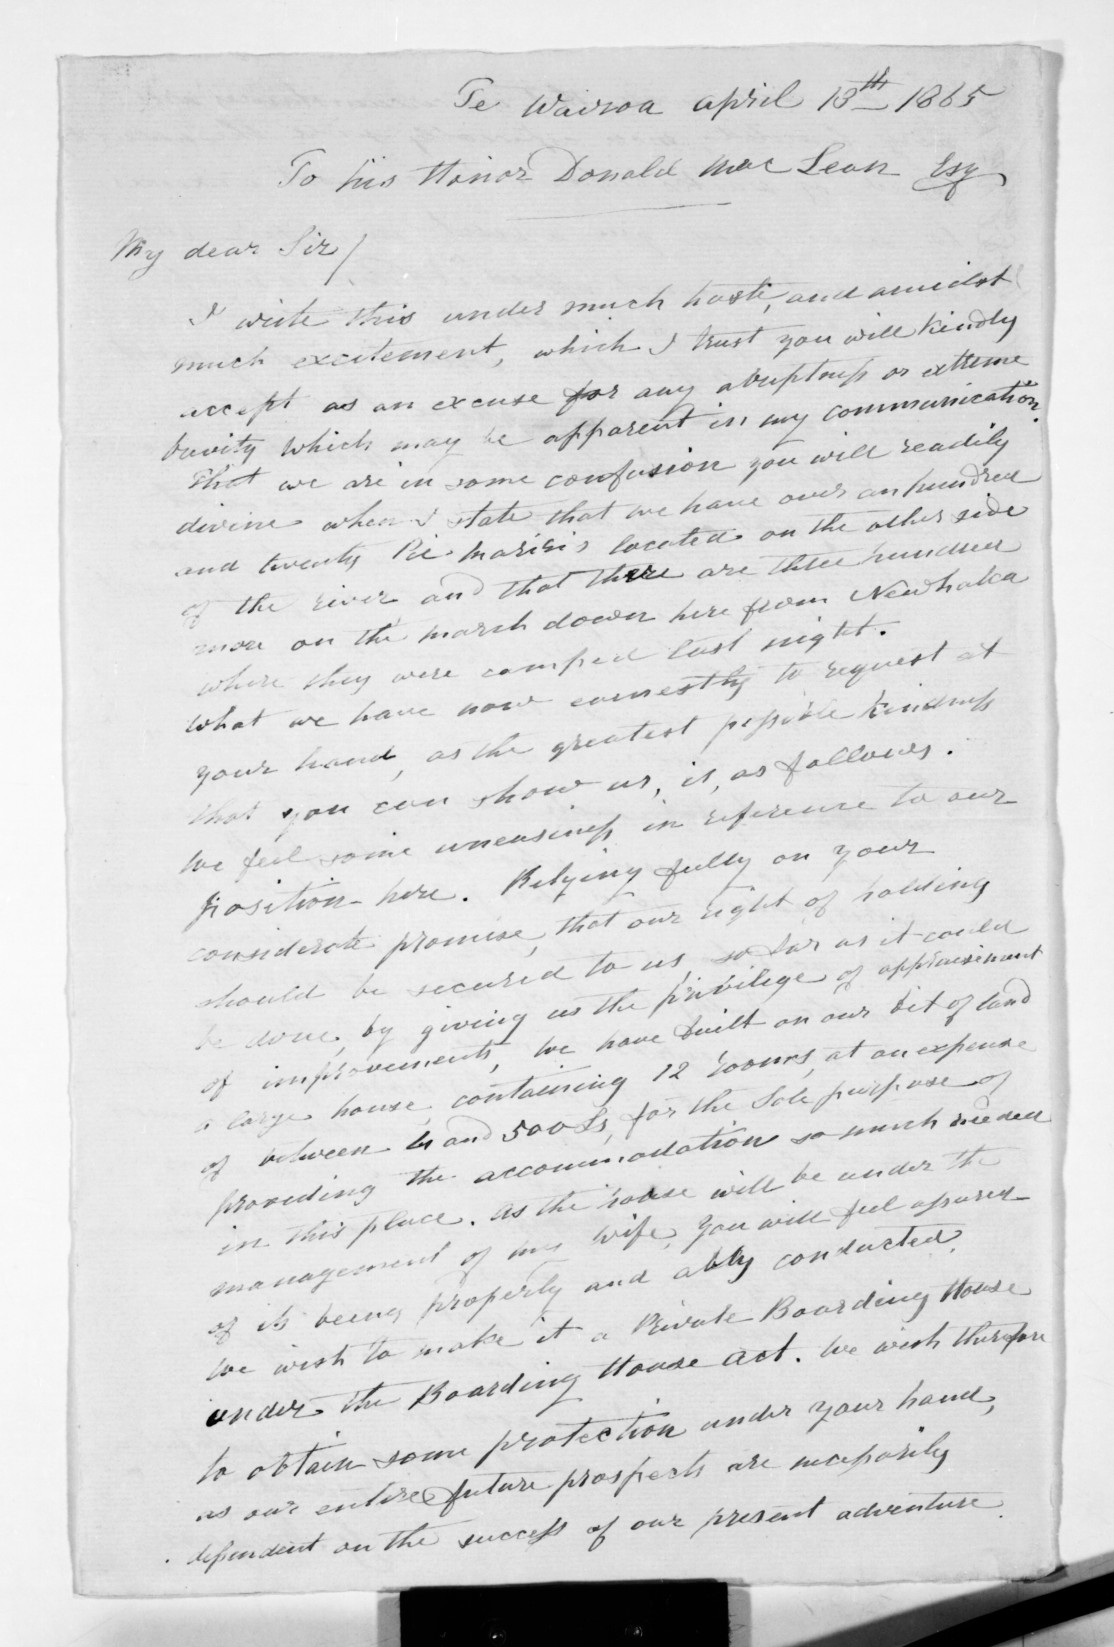 Te Wairoa April 13th 1865
To his Honor Donald Mac Lean Esq
My dear Sir/
I write this under much haste, and amidst
much excitement, which I trust you will kindly
accept as an excuse for any abruptness or extreme
brevity which may be apparent in my communication.
That we are in some confusion you will readily
divine when I state that we have over an hundred
and twenty Pie Mariris located on the other side
of the river and that there are three hundred
more on the march down here from Newhaka
where they were camped last night.
What we have now earnestly to request at
your hand, as the greatest possible kindness
that you can show us, is, as follows.
We feel some uneasiness in reference to our
position here. Relying fully on your
considerate promise, that our right of holding
should be secured to us so far as it could
be done, by giving us the privilege of appraisement
of improvements, we have built on our bit of land
a large house, containing 12 rooms, at an expense
of between 4 and 500£s, for the sole purpose of
providing the accommodation so much needed
in this place. As the house will be under the
management of my wife, you will feel assured
of its being properly and ably conducted.
We wish to make it a Private Boarding House
under the Boarding House Act. We wish therefore
to obtain some protection under your hand,
as our entire future prospects are necessarily
dependent on the success of our present adventure.